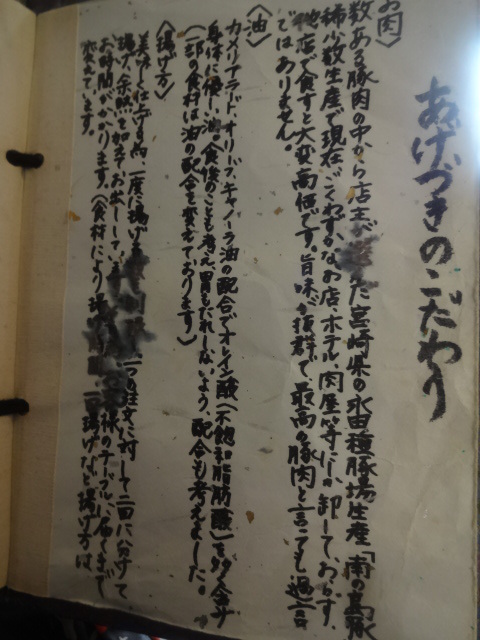 あげづきのこだわり
お肉〉
数ある豚肉の中から店主が た宮崎県の永田種豚場生産「南の島豚
稀少数生産で現在ごくわずかなお店、ホテル、肉屋等にしか卸しておらず、
他店で食すと大変高価です。旨味が抜群で最高の豚肉と言っても過言
ではありません。
〈油〉
カメリアラード、オリーブ、キャノーラ油の配合でオレイン酸(不飽和脂肪酸)を多く含み
身体に優しい油。食後のことも考え、胃もたれしないよう、配合も考えました。
(一部の食材は油の配合を変えております)
〈揚げ方〉
美味しく仕上げる為、一度に揚げる 一つの注文に対して二回に分けて
揚げ、余熱を加えてお出ししていま 様のテーブルに届くまで
お時間がかります。(食材により 揚げなど揚げ方は
変えています。